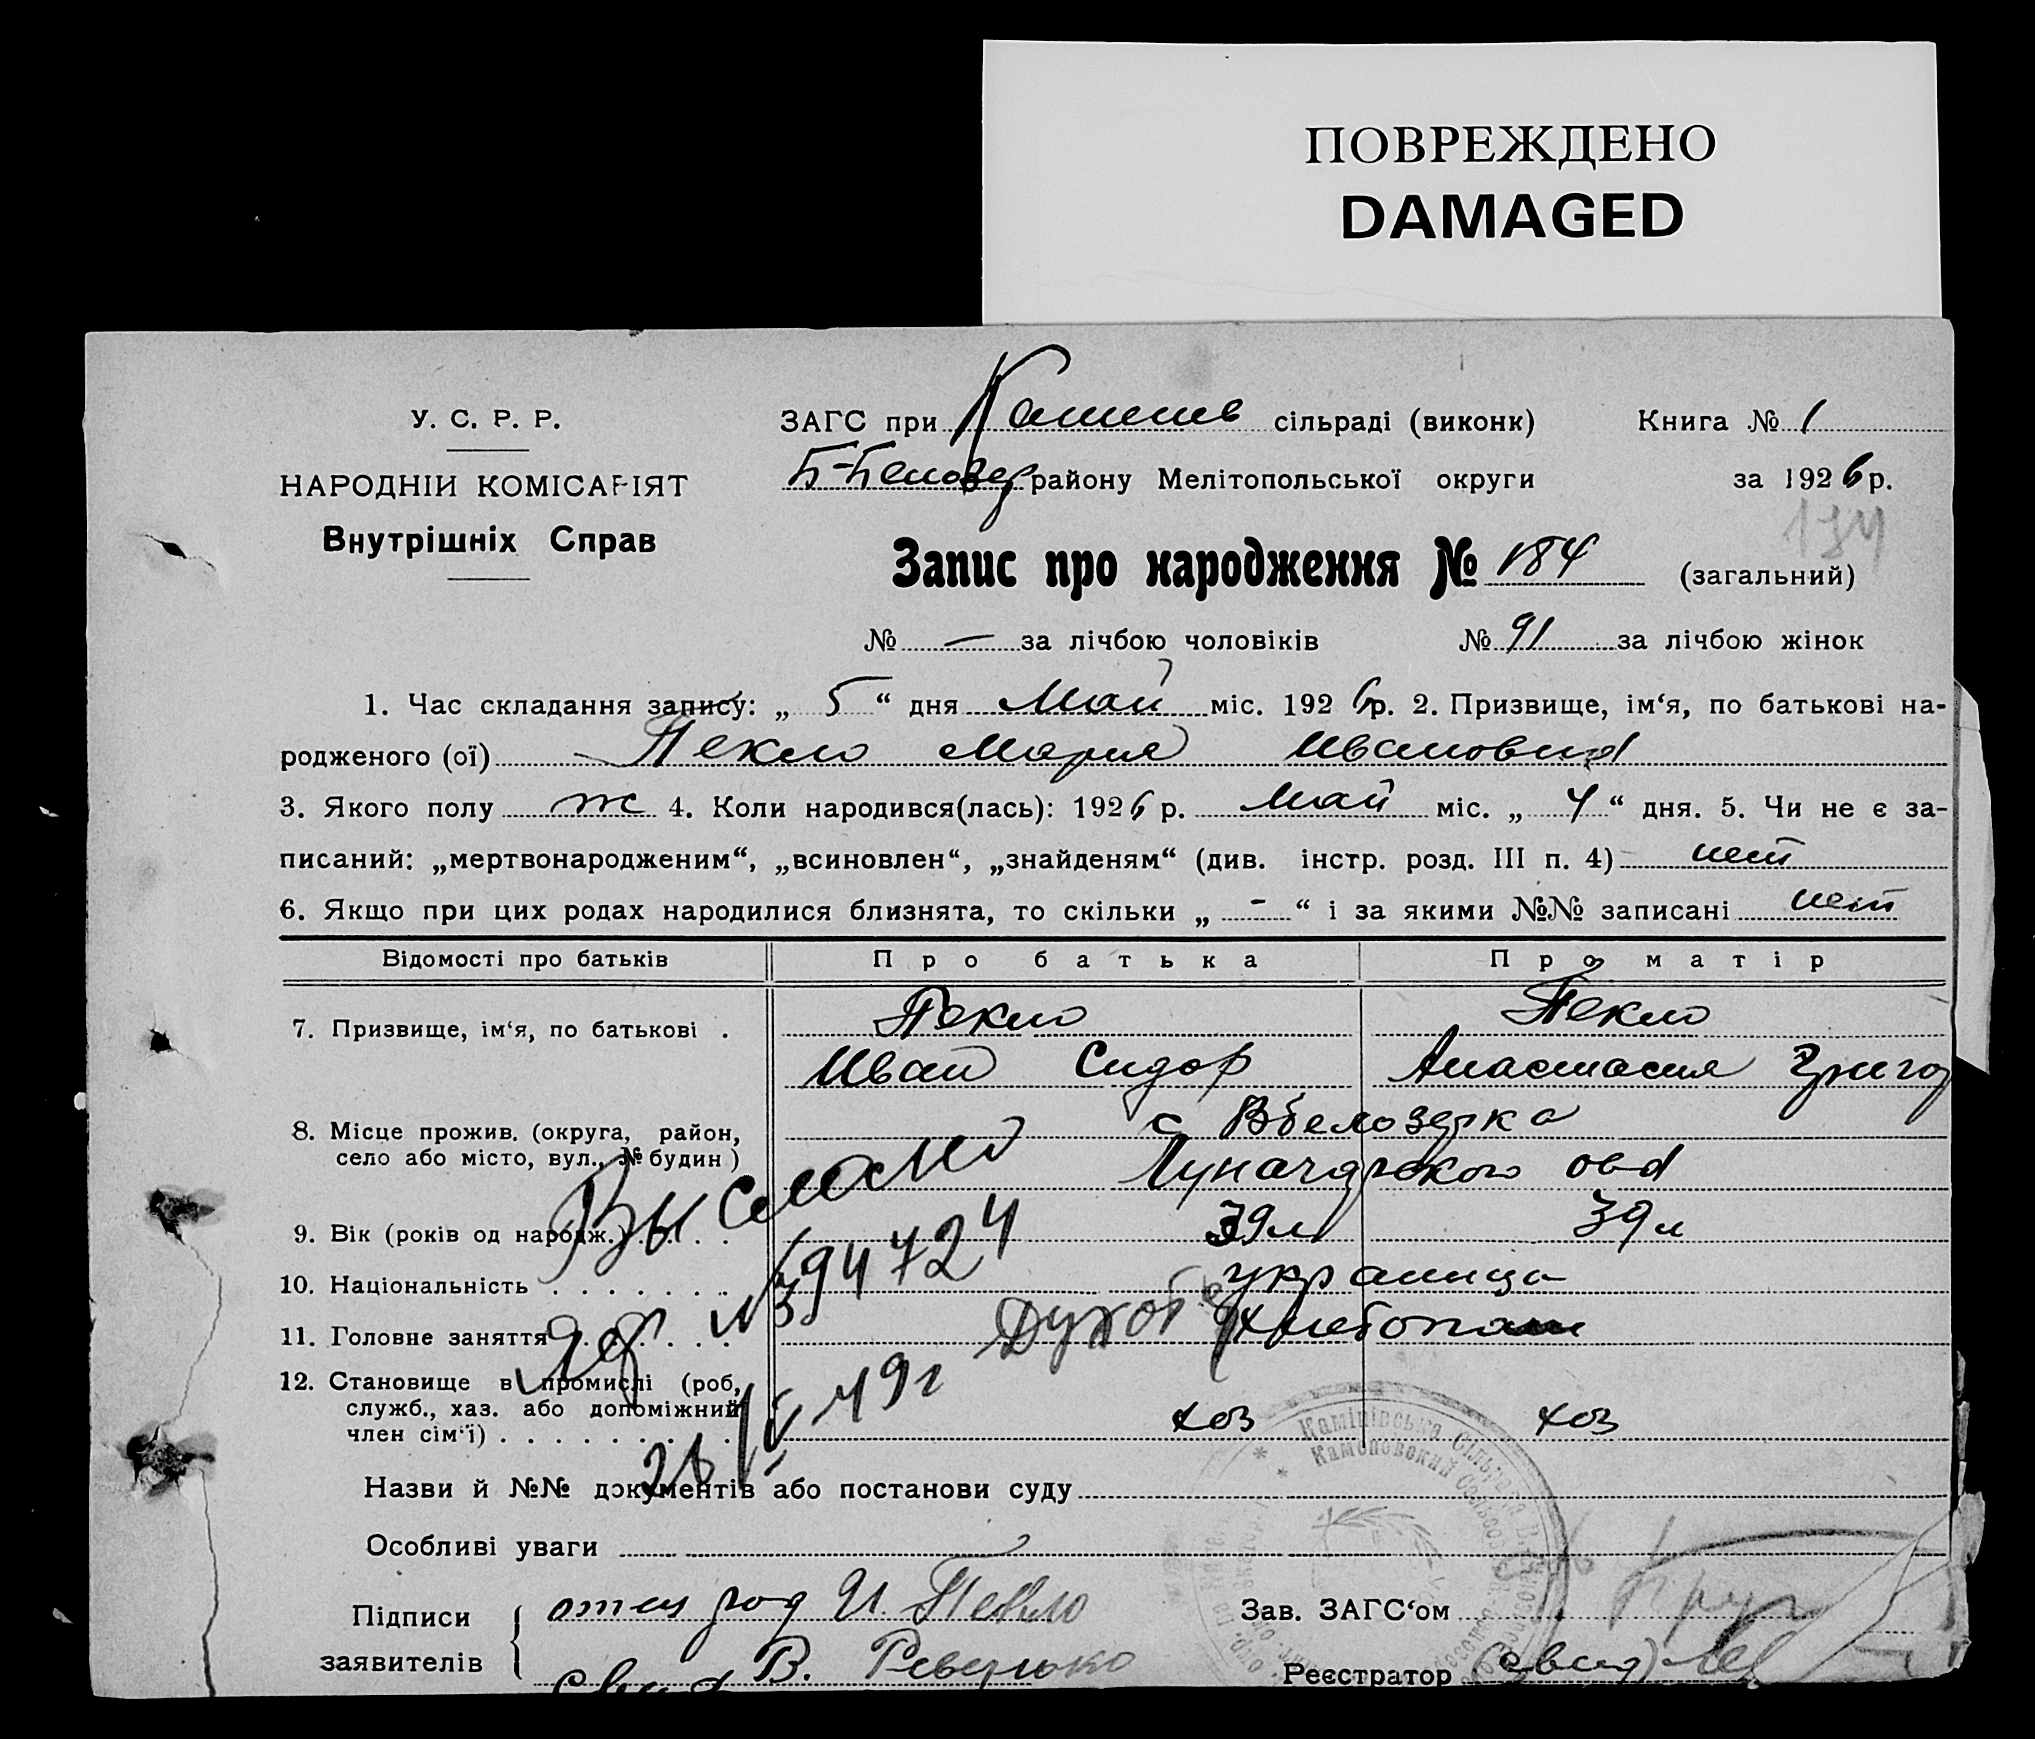 ПОВРЕЖДЕНО
DAMAGED
У. С. Р. Р.
НАРОДНІЙ КОМІСАРІЯТ
Внутрішніх Справ
ЗАГС при сільраді (виконк) Книга № 1
Б-Белозер району Мелітопольської округи за 1926 р.
Запис про народження № 184 (загальний)
№ — за лічбою чоловіків № 91 за лічбою жінок
1. Час складання запису: „ 5 “ дня Май міс. 1926 р. 2. Призвище, ім‘я, по батькові на-
родженого (ої) Пекло Мария Ивановна
3. Якого полу ж 4. Коли народився(лась): 1926 р. Май міс. „ 4 “ дня. 5. Чи не є за-
писаний: „мертвонародженим“, „всиновлен“, „знайденям“ (див. інстр. розд. III п. 4) нет
6. Якщо при цих родах народилися близнята, то скільки „ - “ і за якими №№ записані нет
Відомості про батьків Про батька Про матір
7. Призвище, ім‘я, по батькові . Пекло Пекло
Иван Сидор Анастасия Григор
8. Місце прожив. (округа, район, село або місто, вул., № будин) с Вбелозерка
Луначарского
9. Вік (років од народж.) . . . . 39 л 39 л
10. Національність . . . . . . . украинцы
11. Головне заняття . . . . . . хлебопаш
12. Становище в промислі (роб,
служб., хаз. або допоміжний
член сім‘ї) . . . . . . . . . хоз хоз
Выслано
№ 394724
49г
Назви й №№ документів або постанови суду
Особливі уваги
Підписи заявителів отец И. Пекло
В. Ревенко
Зав. ЗАГС‘ом
Реєстратор
Камінівська Сільрада
Каменовский